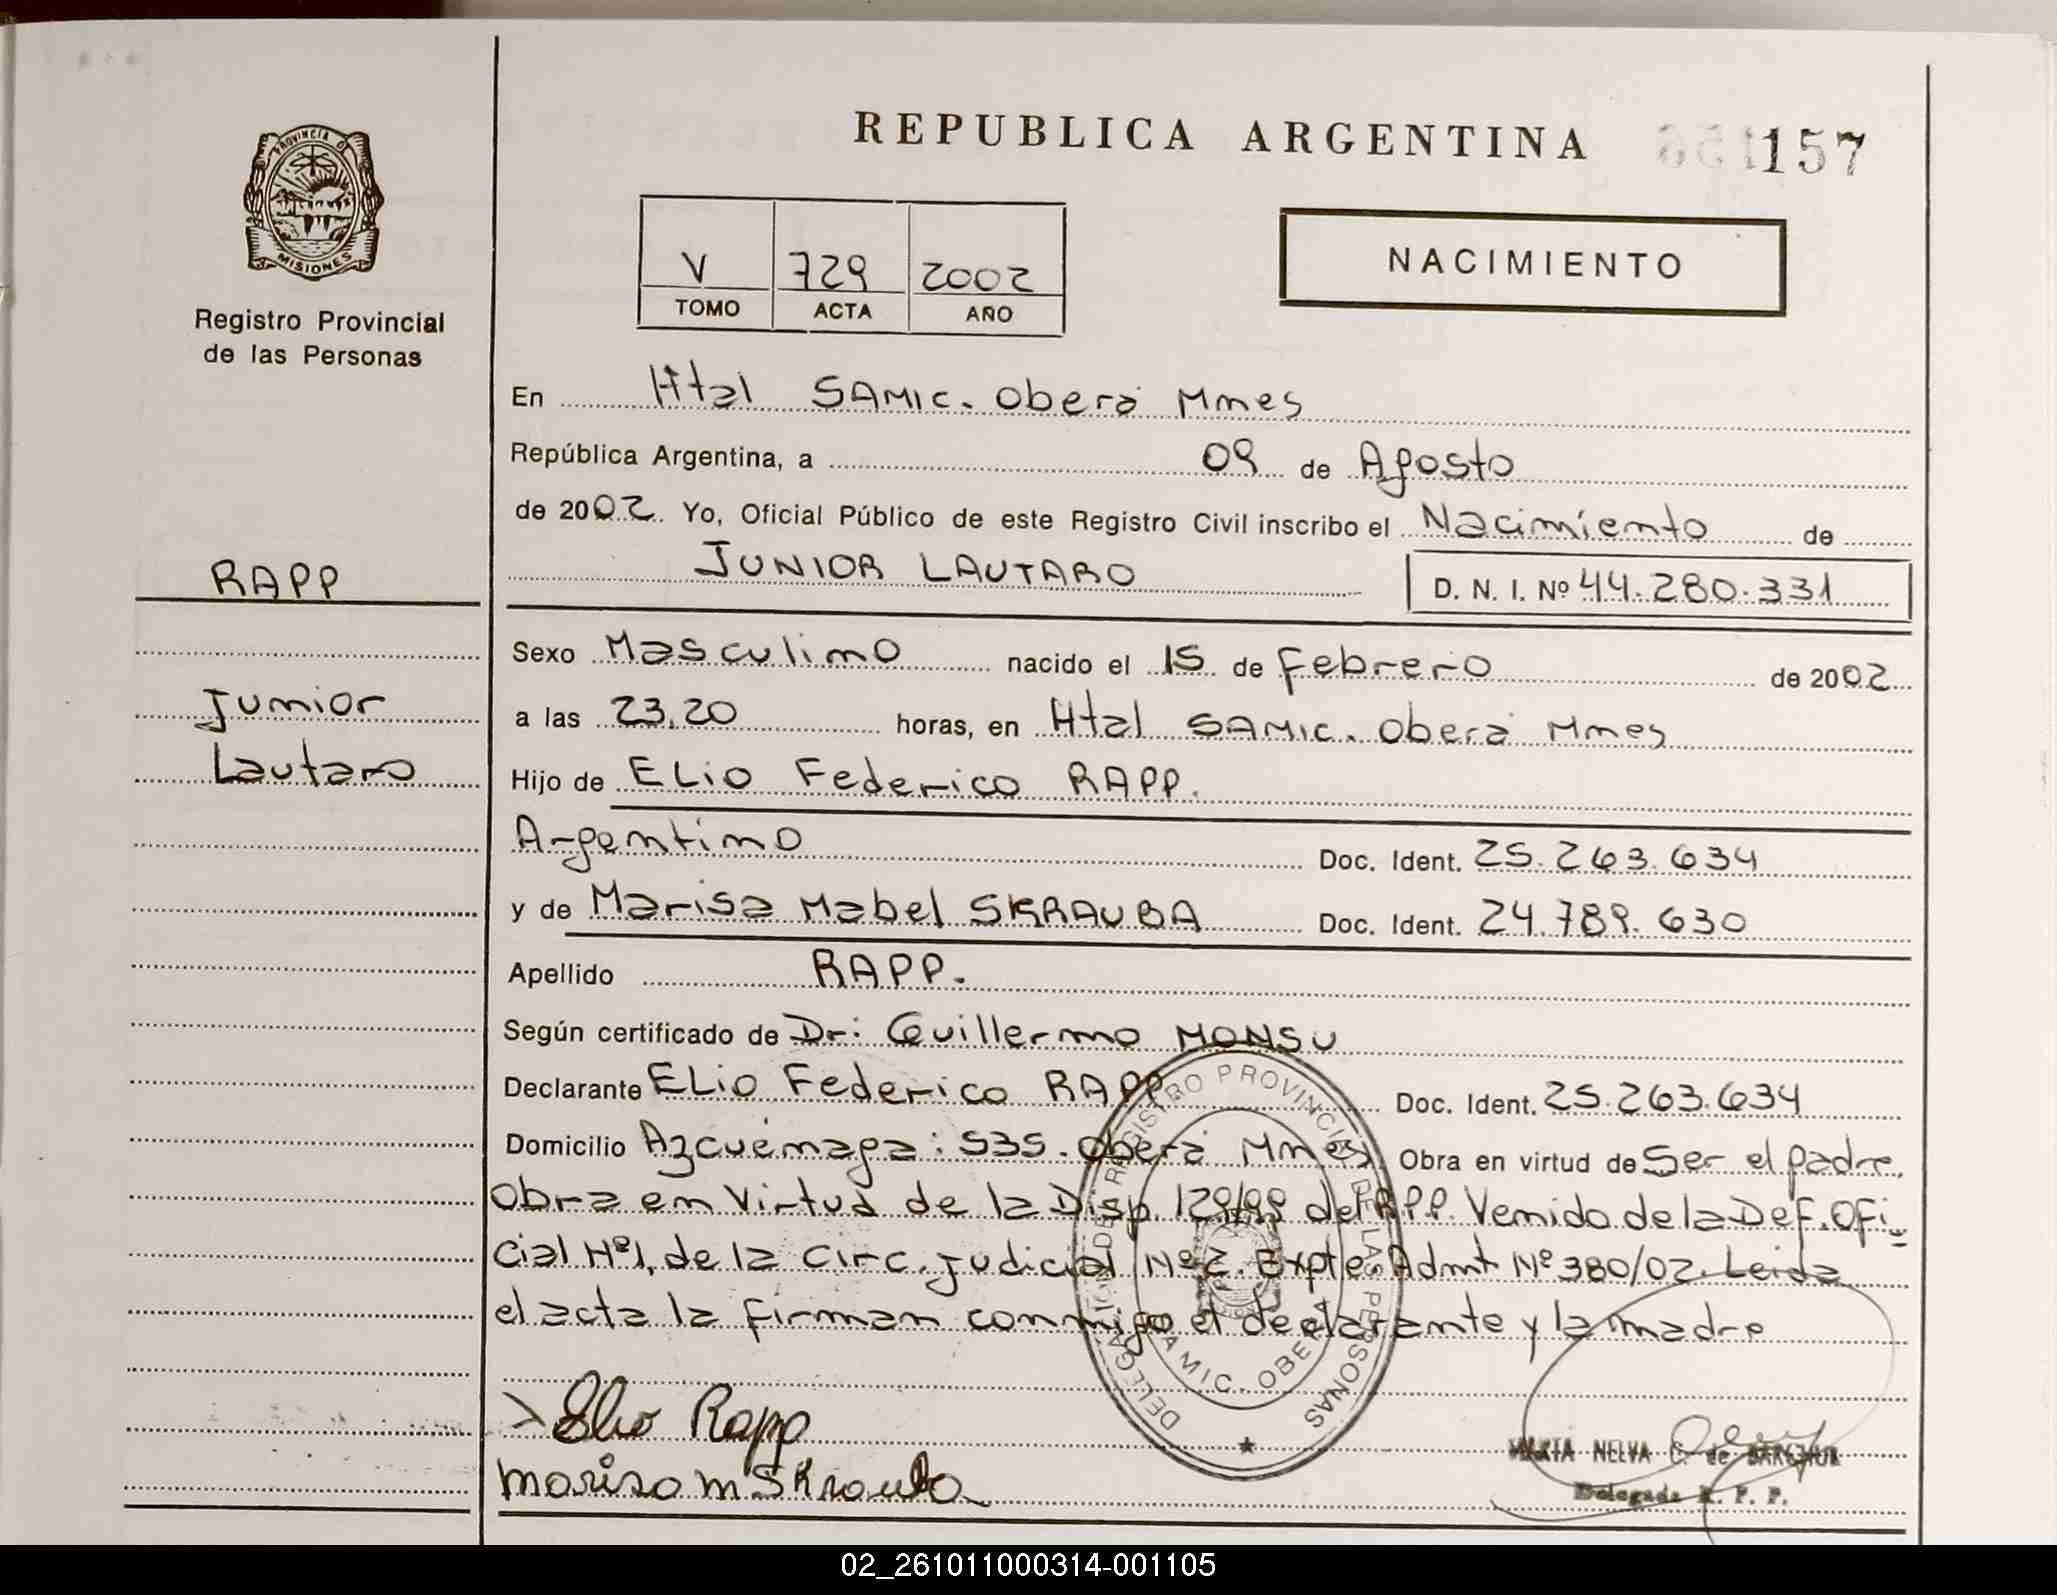 REPUBLICA ARGENTINA
157
PROVINCIA D
MISIONES
Registro Provincial
de las Personas
V 729 2002
TOMO ACTA AÑO
NACIMIENTO
En Htal SAMIC. Oberá Mnes
República Argentina, a 09 de Agosto
de 2002. Yo, Oficial Público de este Registro Civil inscribo el Nacimiento de
JUNIOR LAUTARO D. N. I. Nº 44.280.331
RAPP
Junior
Lautaro
Sexo Masculino nacido el 15 de Febrero de 2002
a las 23.20 horas, en Htal SAMIC. Oberá Mnes
Hijo de ELio Federico RAPP.
Argentino Doc. Ident. 25.263.634
y de Marisa Mabel SKRAUBA Doc. Ident. 24.789.630
Apellido RAPP.
Según certificado de Dr: Guillermo MONSU
Declarante ELio Federico RAPP Doc. Ident. 25.263.634
Domicilio Azcuénaga: 535. Oberá Mnes. Obra en virtud de Ser el padre.
Obra en Virtud de la Disp. 129/99 del RPP. Venido de la Def. Ofi-
cial Nº1, de la Circ. Judicial Nº2. Expte Admt Nº 380/02. Leida
el acta la firman conmigo el declarante y la madre
DELEGACION DE REGISTRO PROVINCIAL DE LAS PERSONAS
SAMIC - OBERA
Elio Rapp
Marisa M SKrauba
MARTA NELVA C. de
Delegada R. P. P.
02_261011000314-001105